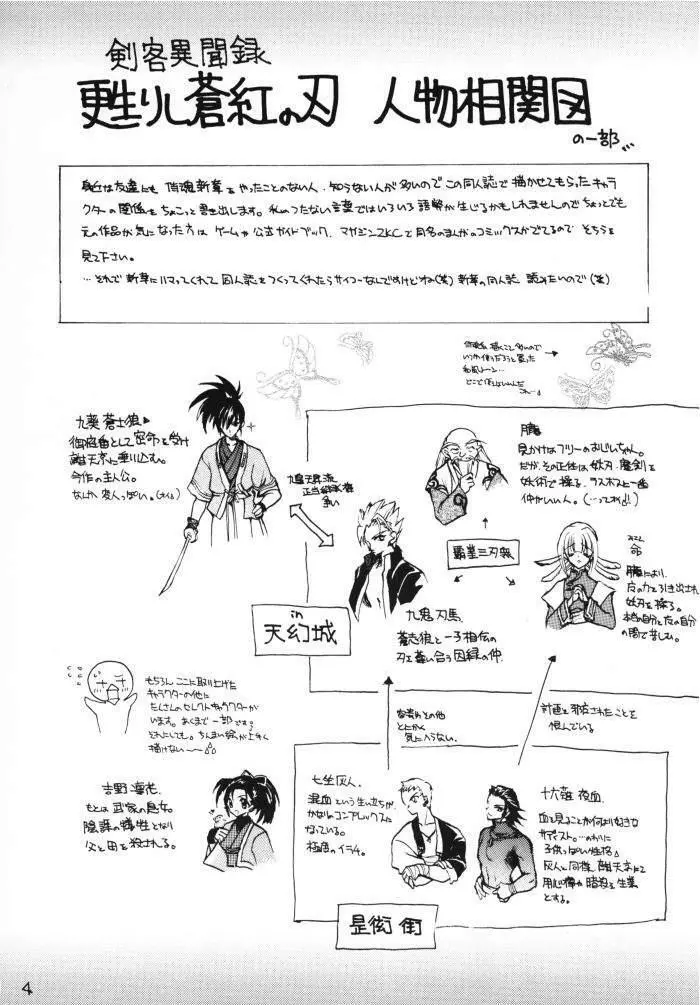 剣客異聞録
甦りし蒼紅の刃 人物相関図
の一部…
身近な友達にも 侍魂新章をやったことのない人、知らない人が多いのでこの同人誌で描かせてもらったキャラ
クターの関係をちょこっと書き出します。私のつたない言葉ではいろいろ誤解が生じるかもしれませんのでちょっとでも
元の作品が気になった方は ゲームや公式ガイドブック、マガジンZKCで同名のまんがのコミックスがでてるので そちらを
見て下さい。
…それで新章にハマってくれて 同人誌をつくってくれたらサイコーなんですけどね(笑) 新章の同人誌 読みたいので(笑)
九葵 蒼志狼
御庭番として密命を受け
離天京に乗り込む。
今作の主人公。
なんか 変人っぽい。
九鬼天昇流
正当継承者
争い
朧
見かけはフリーのおじいちゃん。
だが、その正体は妖刃、魔剣を
妖術で操る、ラスボスと一番
仲がいい人。
覇業三刃衆
命
朧により、
反の力を引き出され
妖刃を操る。
本当の自分と反の自分
の間で苦しむ。
九鬼 刃馬
蒼志狼と一子相伝の
刃を奪い合う因縁の仲。
in
天幻城
もちろん ここに取り上げた
キャラクターの他に
たくさんのセレクトキャラクターが
います。あくまで一部です。
とにかく
気に入らない。
計画を邪魔されたことを
恨んでいる
吉野 凜花
もとは武家の息女。
陰謀の犠牲となり
父と母を殺される。
七坐 灰人
混血という生い立ちが
かなりのコンプレックスに
なっている。
極度のイラチ。
十六夜 夜血
血を見ることが何より好きな
サディスト。
子供っぽい性格
灰人と同様、離天京にて
用心棒や暗殺を生業
とする。
是衒街
4